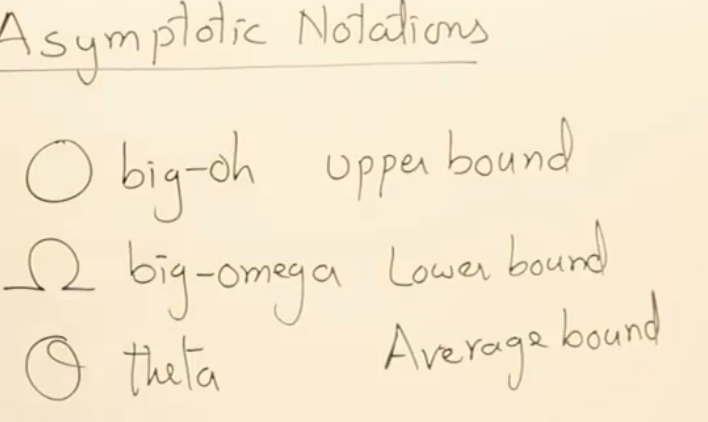 Asymptotic Notations
O big-oh upper bound
Ω big-omega Lower bound
Θ theta Average bound